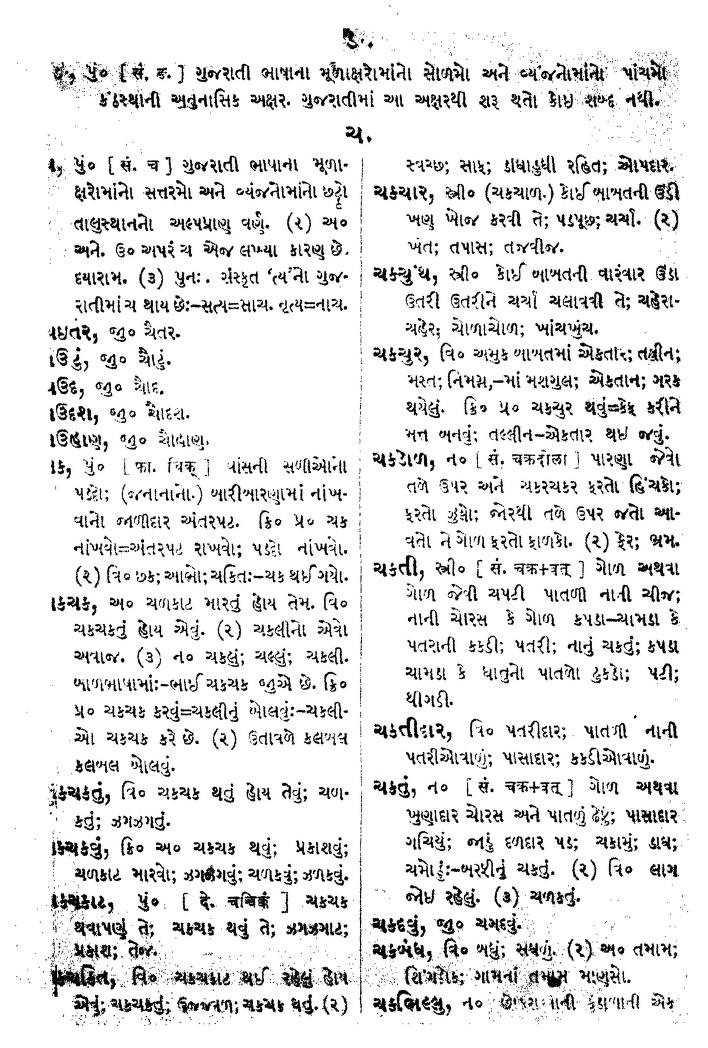 ઙ.
પું૦ [ સં. ङ. ] ગુજરાતી ભાષાના મૂળાક્ષરોમાંનો સોળમો અને વ્યંજનોમાંનો પાંચમો
કંઠસ્થાની અનુનાસિક અક્ષર. ગુજરાતીમાં આ અક્ષરથી શરૂ થતો કોઇ શબ્દ નથી.
ચ.
પું૦ [ સં. च ] ગુજરાતી ભાષાના મૂળા-
ક્ષરોમાંનો સત્તરમો અને વ્યંજનોમાંનો છઠ્ઠો
તાલુસ્થાનનો અલ્પપ્રાણ વર્ણ. (૨) અ૦
અને. ઉ૦ અપરં ચ એજ લખ્યા કારણ છે.
દયારામ. (૩) પુનઃ. સંસ્કૃત ‘ત્ય’નો ગુજ-
રાતીમાં ચ થાય છેઃ–સત્ય=સાચ. નૃત્ય=નાચ.
ચઇતર, જી૦ ચૈતર.
ચઉટું, જી૦ ચૌટું.
ચઉદ, જી૦ ચૌદ.
ચઉદશ, જી૦ ચૌદશ.
ચઉહાણ, જી૦ ચૌહાણ.
ચક, પું૦ [ फा. चिक् ] વાંસની સળીઓનો
પડદો; (જનાનાનો.) બારીબારણામાં નાંખ-
વાનો જાળીદાર અંતરપટ. ક્રિ૦ પ્ર૦ ચક
નાંખવો=અંતરપટ રાખવો; પડદો નાંખવો.
(૨) વિ૦ છક; આભો; ચકિતઃ–ચક થઈ ગયો.
ચકચક, અ૦ ચળકાટ મારતું હોય તેમ. વિ૦
ચકચકતું હોય એવું. (૨) ચકલીનો એવો
અવાજ. (૩) ન૦ ચકલું; ચલ્લું; ચકલી.
બાળભાષામાંઃ–ભાઈ ચકચક જુએ છે. ક્રિ૦
પ્ર૦ ચકચક કરવું=ચકલીનું બોલવુંઃ–ચકલી-
ઓ ચકચક કરે છે. (૨) ઉતાવળે કલબલ
કલબલ બોલવું.
ચકચકતું, વિ૦ ચકચક થતું હોય તેવું; ચળ-
કતું; ઝગઝગતું.
ચકચકવું, ક્રિ૦ અ૦ ચકચક થવું; પ્રકાશવું;
ચળકાટ મારવો; ઝગઝગવું; ચળકવું; ઝળકવું.
ચકચકાટ, પું૦ [ दे. चच्चिक्कं ] ચકચક
થવાપણું તે; ચકચક થવું તે; ઝગઝગાટ;
પ્રકાશ; તેજ.
ચકચકિત, વિ૦ ચકચકાટ થઈ રહેલું હોય
એવું; ચકચકતું; ઉજ્જવળ; ચકચક થતું. (૨)
સ્વચ્છ; સાફ; ડાઘાડુઘી રહિત; ઓપદાર.
ચકચાર, સ્ત્રી૦ (ચકચાળ.) કોઈ બાબતની ઉંડી
ખણ ખોજ કરવી તે; પડપૂછ; ચર્ચા. (૨)
ખંત; તપાસ; તજવીજ.
ચકચુંધ, સ્ત્રી૦ કોઈ બાબતની વારંવાર ઉંડા
ઉતરી ઉતરીને ચર્ચા ચલાવવી તે; ચહેરા-
ચહેર; ચોળાચોળ; ખાંચખુંચ.
ચકચુર, વિ૦ અમુક બાબતમાં એકતાર; તલ્લીન;
મસ્ત; નિમગ્ન,–માં મશગુલ; એકતાન; ગરક
થયેલું. ક્રિ૦ પ્ર૦ ચકચુર થવું=કેફ કરીને
મત્ત બનવું; તલ્લીન–એકતાર થઈ જવું.
ચકડોળ, ન૦ [ સં. चक्रदोला ] પારણા જેવો
તળે ઉપર અને ચકરચકર ફરતો હિંચકો;
ફરતો ઝુકો; જોરથી તળે ઉપર જતો આ-
વતો ને ગોળ ફરતો ફાળકો. (૨) ફેર; ભ્રમ.
ચકતી, સ્ત્રી૦ [ સં. चक्र+वत् ] ગોળ અથવા
ગોળ જેવી ચપટી પાતળી નાની ચીજ;
નાની ચોરસ કે ગોળ કપડા–ચામડા કે
પતરાની કકડી; પતરી; નાનું ચકતું; કપડા
ચામડા કે ધાતુનો પાતળો ટુકડો; પટી;
થીગડી.
ચકતીદાર, વિ૦ પતરીદાર; પાતળી નાની
પતરીઓવાળું; પાસાદાર; કકડીઓવાળું.
ચકતું, ન૦ [ સં. चक्र+वत् ] ગોળ અથવા
ખુણાદાર ચોરસ અને પાતળું ઢેફું; પાસાદાર
ગચિયું; જાડું દળદાર પડ; ચકામું; ડાઘ;
ચમોઠુંઃ–બરફીનું ચકતું. (૨) વિ૦ લાગ
જોઇ રહેલું. (૩) ચળકતું.
ચકદવું, જી૦ ચગદવું.
ચકબંધ, વિ૦ બધું; સઘળું. (૨) અ૦ તમામ;
ગામનાં તમામ માણસો.
ચકભિલ્લુ, ન૦ એક